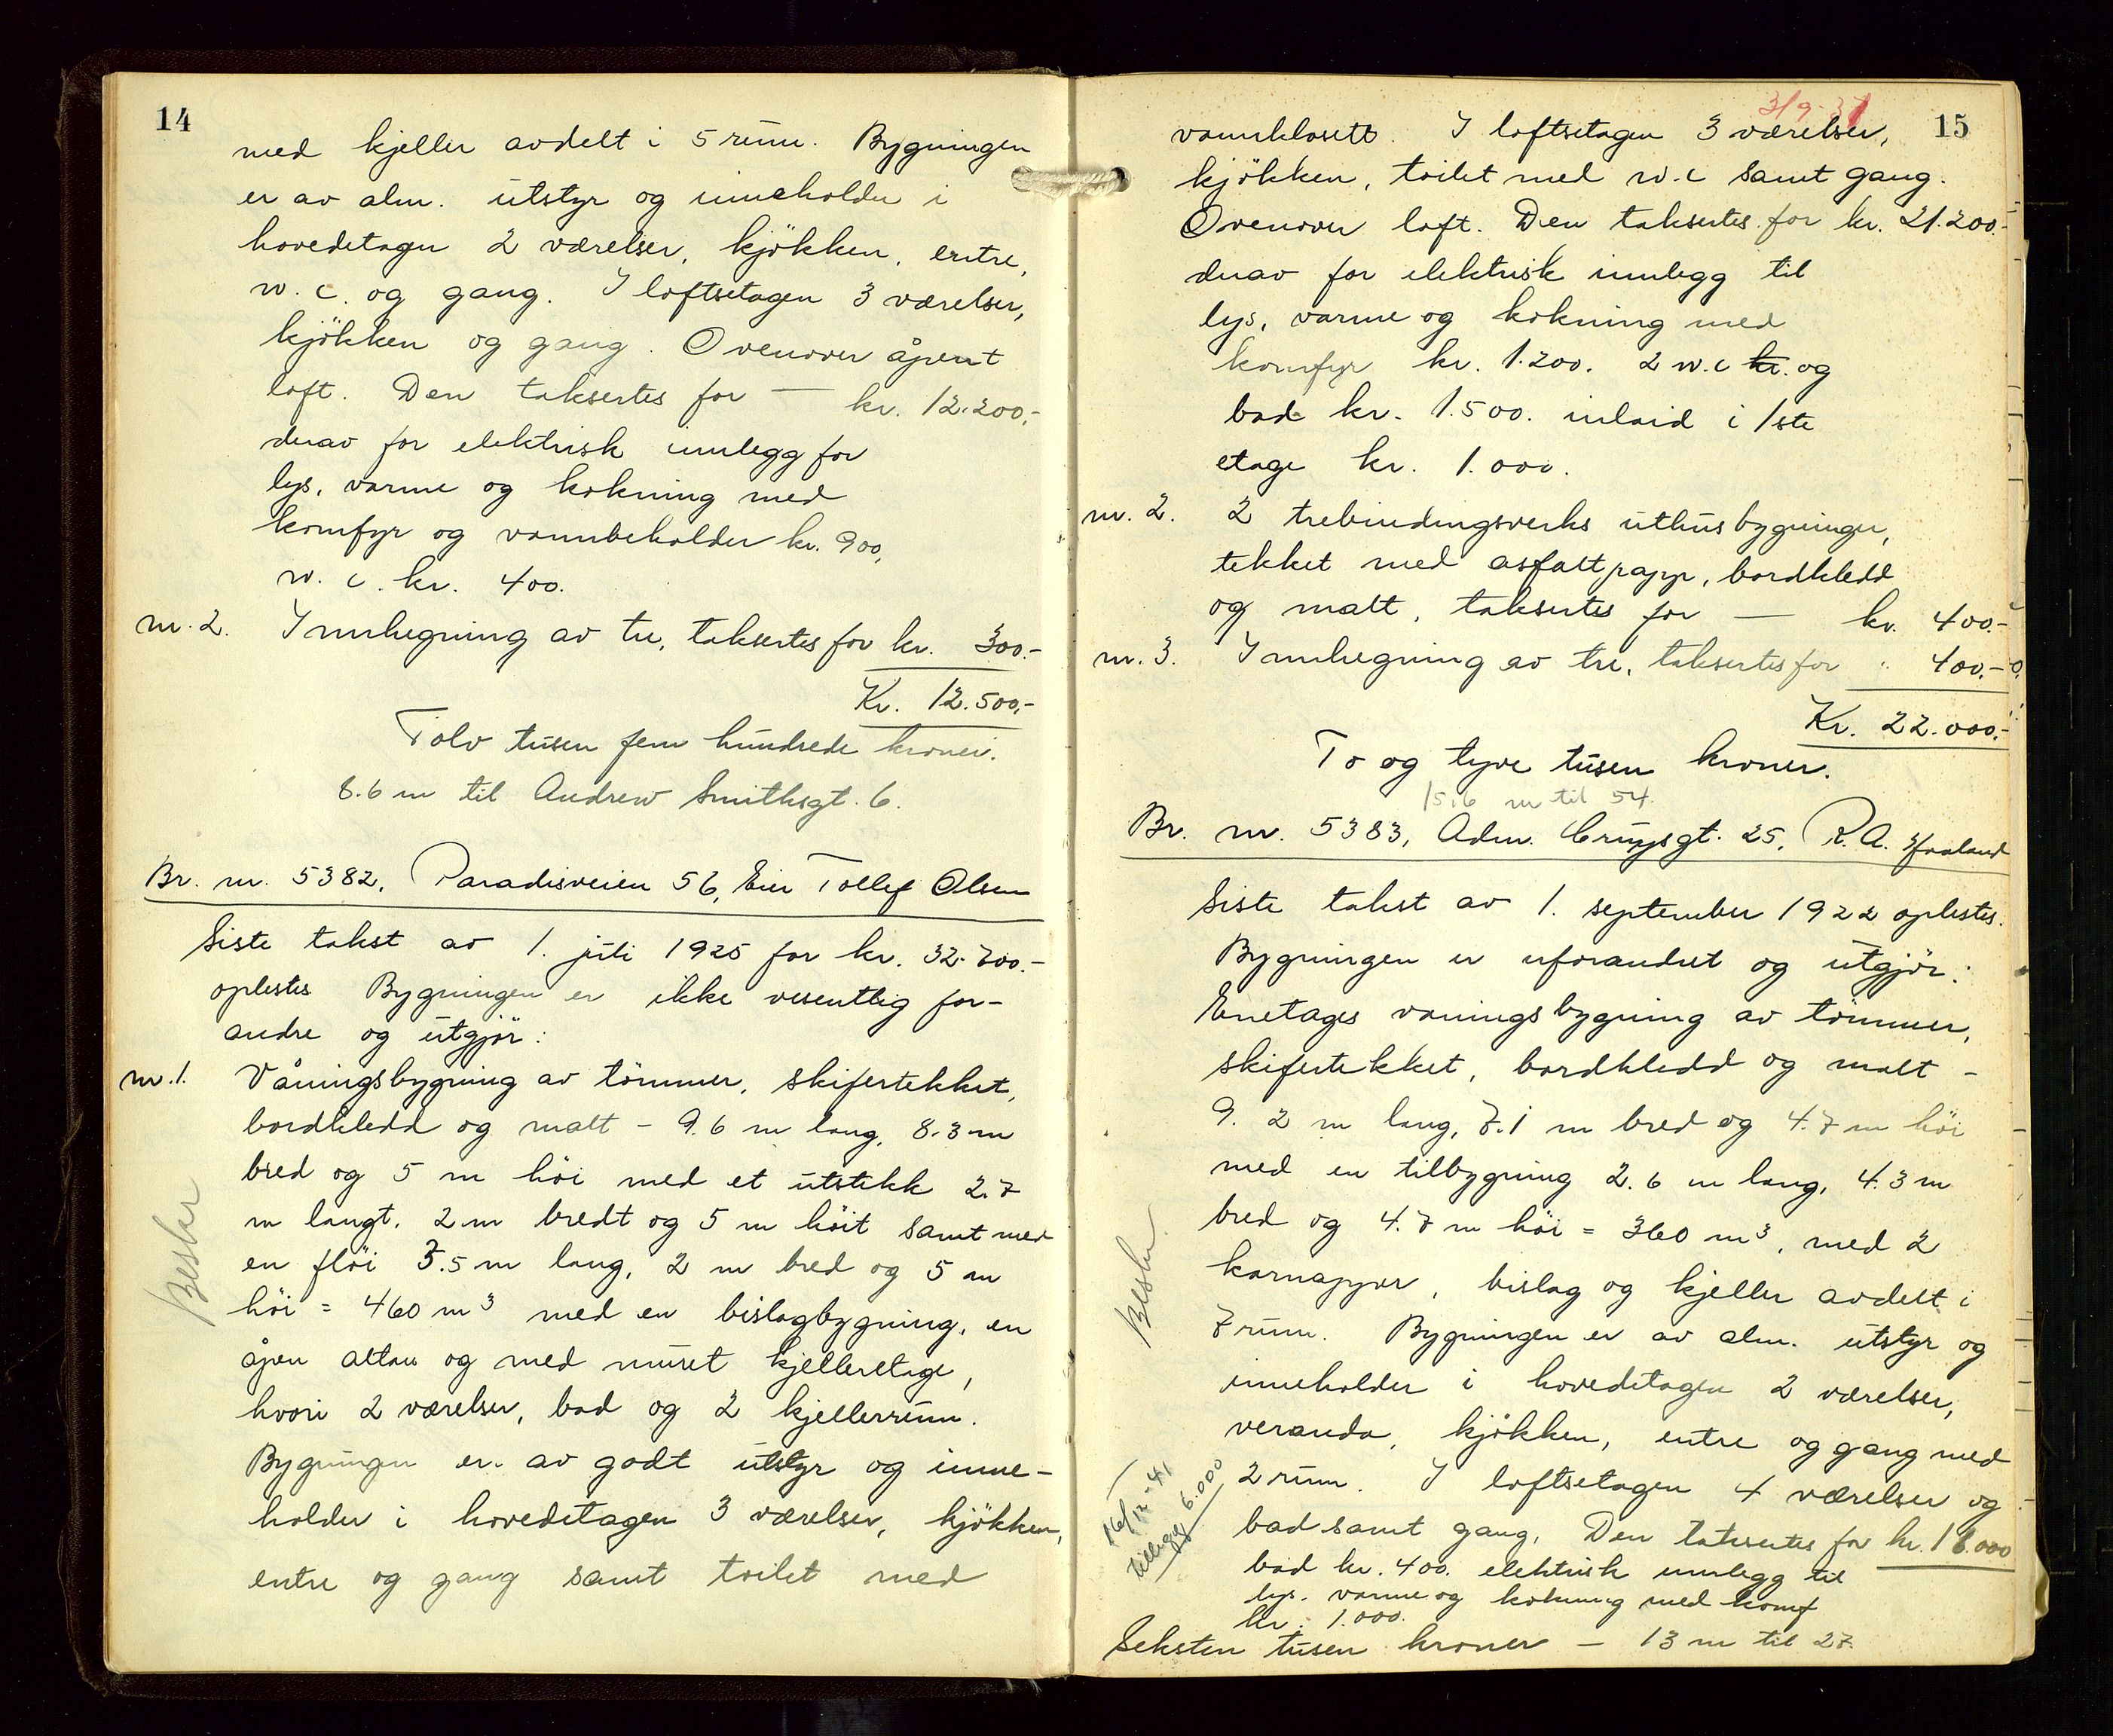 14
med kjeller avdelt i 5 rum. Bygningen
er av alm. utstyr og inneholder i
hovedetagen 2 værelser, kjökken, entre,
w.c. og gang. I loftsetagen 3 værelser,
kjökken og gang. Ovenover åpent
loft. Den taksertes for — kr. 12.200,-
derav for elektrisk innlegg for
lys, varme og kokning med
komfyr og vannbeholder kr. 900,
w.c. kr. 400.
nr. 2. Innhegning av tre, taksertes for kr. 300.-
Kr. 12.500,-
Tolv tusen fem hundrede kroner.
8.6 m til Andrew Smithsgt. 6.
Br. nr. 5382, Paradisveien 56, Eier Tollef Olsen
Siste takst av 1. juli 1925 for kr. 32.700.-
oplestes Bygningen er ikke vesentlig for-
andre og utgjör:
nr. 1. Våningsbygning av tömmer, skifertekket,
bordkledd og malt - 9.6 m lang, 8.3 m
bred og 5 m höi med et utstikk 2.7
m langt, 2 m bredt og 5 m höit samt med
en flöi 3.5 m lang, 2 m bred og 5 m
höi = 460 m³ med en bislagbygning, en
åpen altan og med muret kjelleretage,
hvori 2 værelser, bad og 2 kjellerrum.
Bygningen er av godt utstyr og inne-
holder i hovedetagen 3 værelser, kjökken,
entre og gang samt toilet med
Beskr
3/9-37
15
vannklosett. I loftsetagen 3 værelser,
kjökken, toilet med w.c samt gang.
Ovenover loft. Den taksertes for kr. 21.200.-
derav for elektrisk innlegg til
lys, varme og kokning med
komfyr kr. 1.200. 2 w.c kr. og
bad kr. 1.500. inlaid i 1ste
etage kr. 1.000.
nr. 2. 2 trebindingsverks uthusbygninger,
tekket med asfaltpapp, bordkledd
og malt, taksertes for — kr. 400.-
nr. 3. Innhegning av tre, taksertes for " 400.-
Kr. 22.000.-
To og tyve tusen kroner.
15.6 m til 54.
Br. nr. 5383, Adm. Cruysgt. 25, R.A. Haaland
Siste takst av 1. september 1922 oplestes.
Bygningen er uforandret og utgjör:
Enetages vaningsbygning av tömmer,
skifertekket, bordkledd og malt -
9.2 m lang, 7.1 m bred og 4.7 m höi
med en tilbygning 2.6 m lang, 4.3 m
bred og 4.7 m höi = 360 m³, med 2
karnapper, bislag og kjeller avdelt i
7 rum. Bygningen er av alm. utstyr og
inneholder i hovedetagen 2 værelser,
veranda, kjökken, entre og gang med
2 rum. I loftsetagen 4 værelser og
bad samt gang. Den taksertes for kr. 16.000
bad kr. 400. elektrisk innlegg til
lys, varme og kokning med komf
kr. 1.000.
Seksten tusen kroner — 13 m til 27.
Beskr.
16/12-41
tillegg 6.000